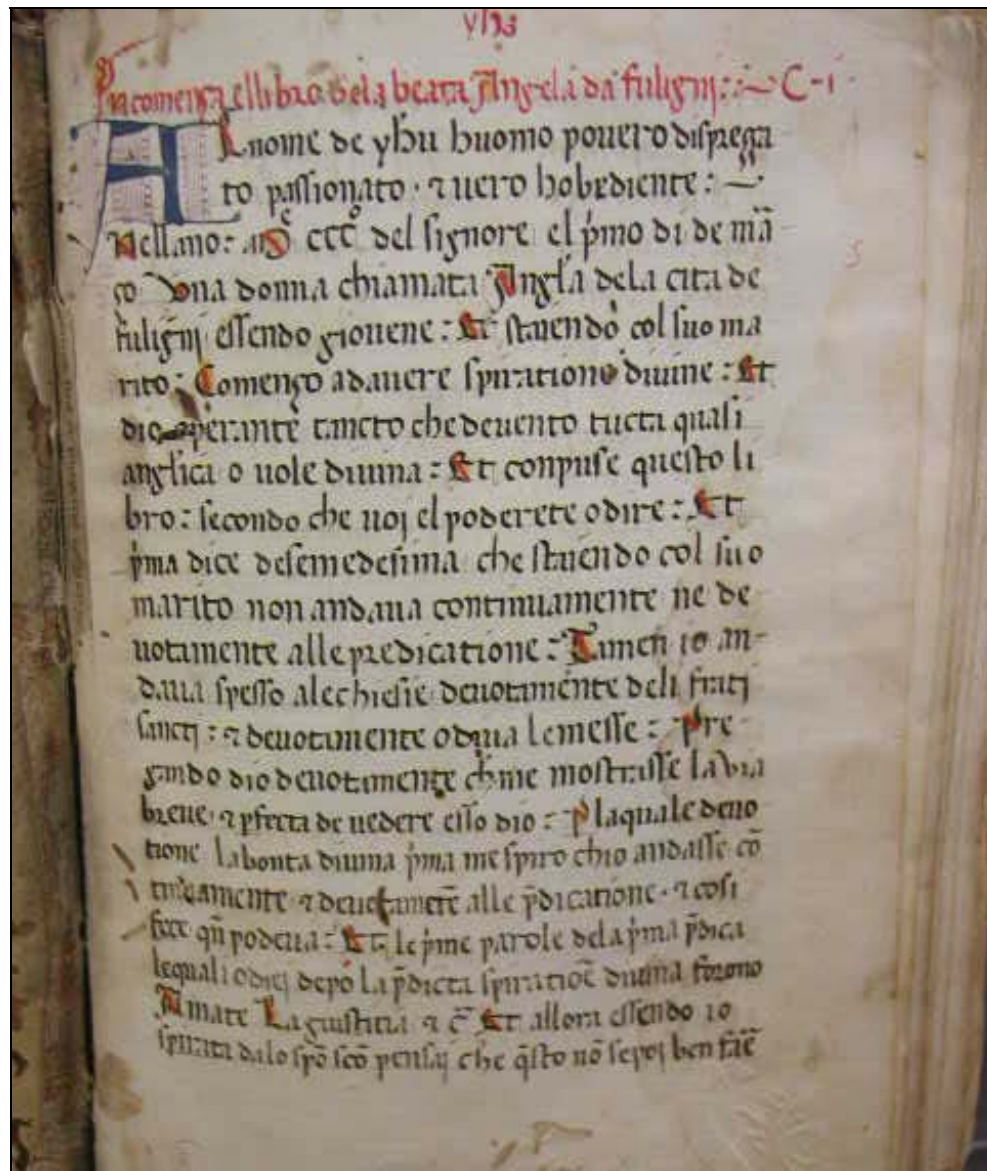 yhs
Incomenza el libro dela beata Angela da fuligni :~ C-i
Al nome de yhu huomo povero dispreza
to passionato · ⁊ uero hobediente :~
Nellano: CCC del signore el pͥmo di de mā
ço Vna donna chiamata Angl̄a dela cita de
fuligni essendo giovene : Et stauendo col suo ma
rito : Començo ad auere spiratione diuine : Et
dio operante tancto che deuento tucta quasi
anglica o uole diuina : Et conpuse questo li
bro : secondo che uoj el poderete odire : Et
pͥma dice de semedesima che stauendo col suo
marito non andaua continuamente ne de
uotamente alle predicatione : Tamen io an-
daua spesso ale chiesie deuotamente deli fratj
sanctj : ⁊ deuotamente odiua le messe : Pre
gando dio deuotamente ch̄ me mostrasse la via
breue · ⁊ ꝑfecta de uedere esso dio : ꝑ laquale deuo
tione la bonta diuina pͥma me spiro chio andasse cō
⁊ deuotamētē alle p̄dicatione · ⁊ cosi
fece qn̄ podeua : Et le pͥme parole dela pͥma p̄dica
lequali odiej depo la p̄dicta spiratioē diuina forono
Amate La giustitia ⁊ c̄ Et allora essendo io
spirata dalo spō scō pensaj che q̄sto nō se poj ben faē